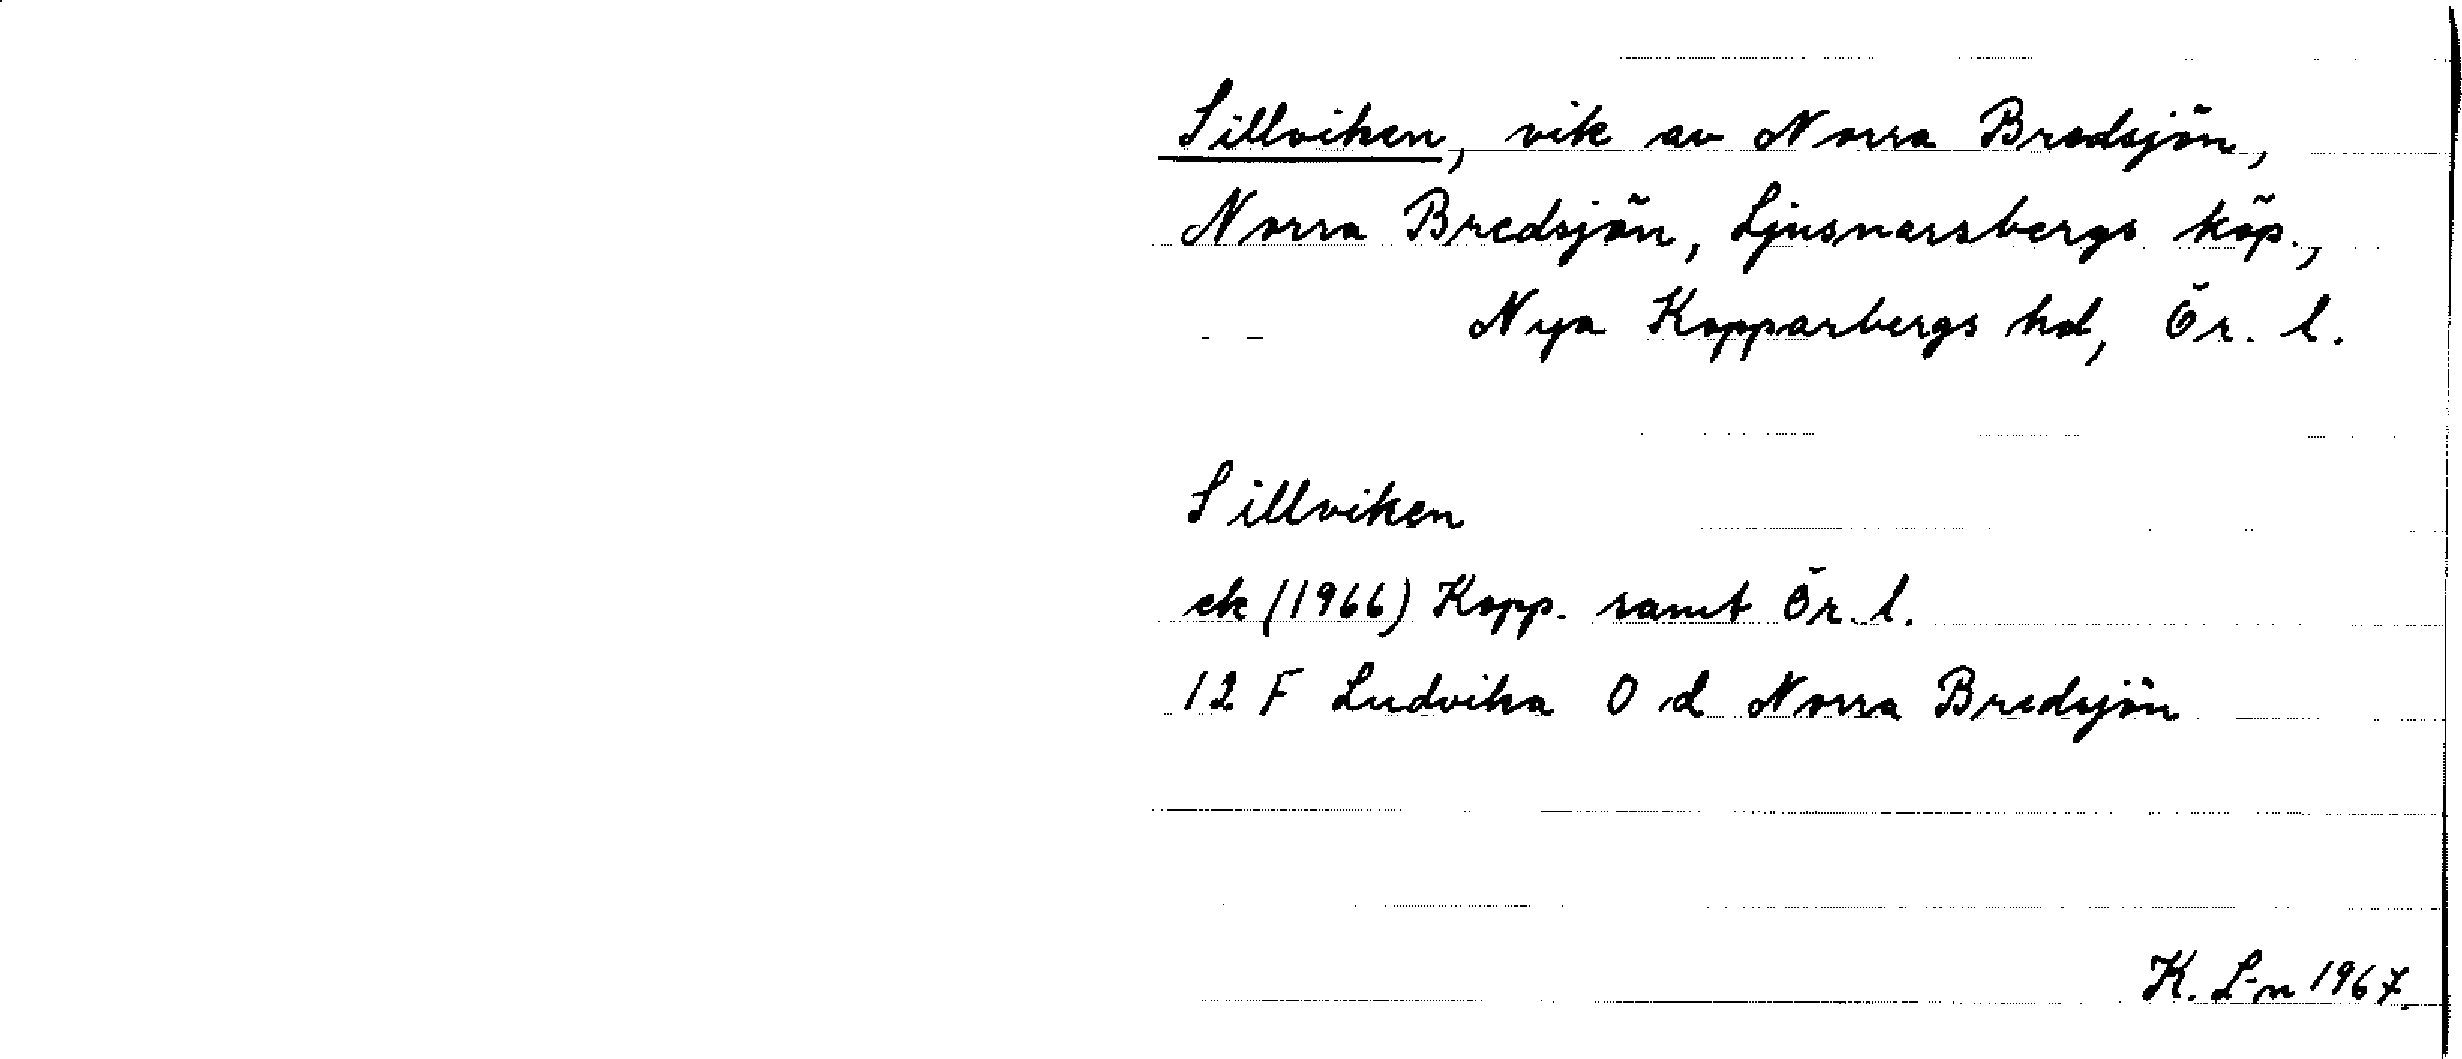 Sillviken, vik av Norra Bredsjön,
Norra Bredsjön, Ljusnarsbergs köp.,
Nya Kopparbergs hd, Ör. l.
Sillviken
ek (1966) Kopp. samt Ör. l.
12 F Ludvika O d Norra Bredsjön
K. L-n 1967.